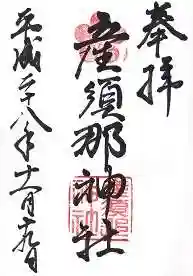 奉拝
産須那神社
平成二十八年十一月十九日